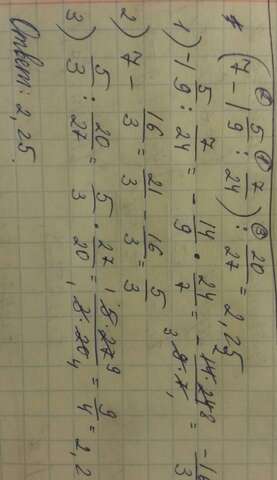 (7 - 1 5/9 : 7/24) : 20/27 = 2,25
1) -1 5/9 : 7/24 = - 14/9 · 24/7 = - 14·24/9·7 = -16/3
2) 7 - 16/3 = 21/3 - 16/3 = 5/3
3) 5/3 : 20/27 = 5/3 · 27/20 = 5·27/3·20 = 9/4 = 2,2
Ответ: 2,25.